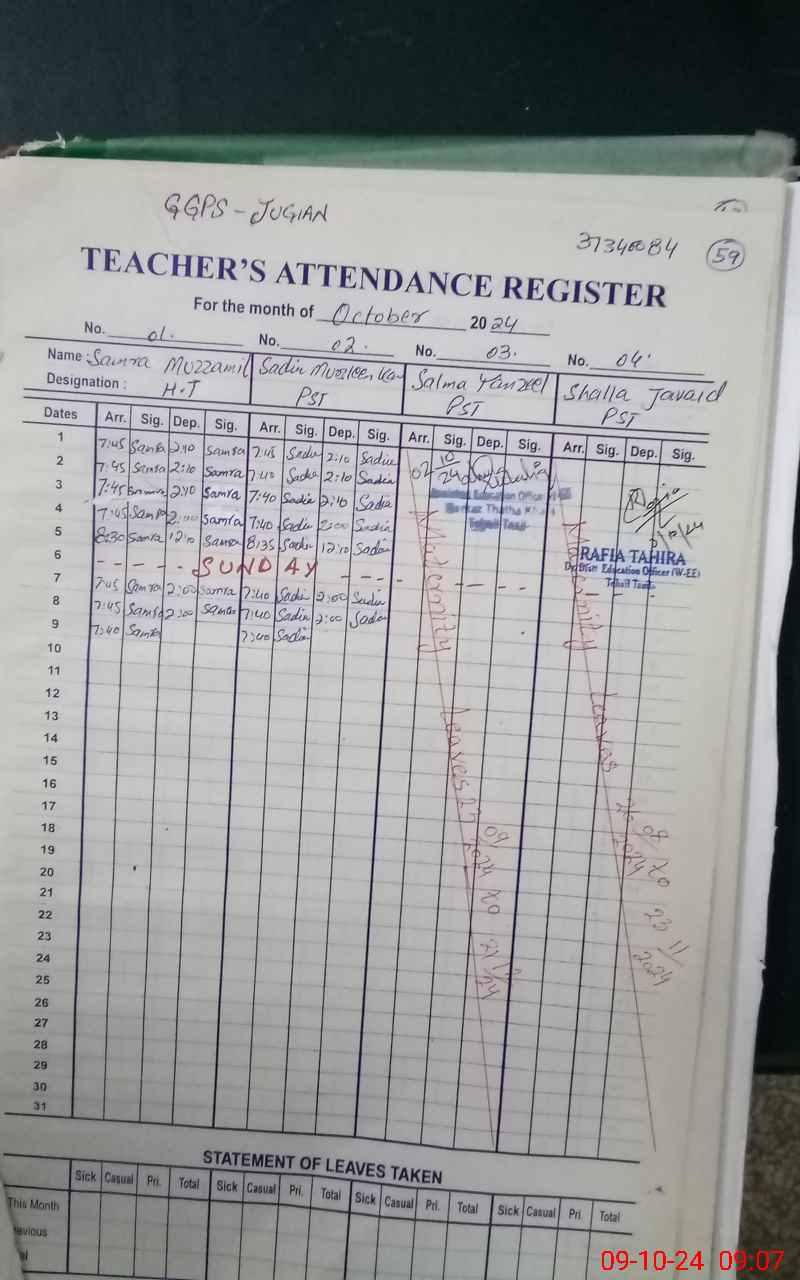 GGPS - JUGIAN
37340084 59
TEACHER'S ATTENDANCE REGISTER
For the month of October 2024
No. 01. No. 02. No. 03. No. 04.
Name : Samra Muzzamil Sadia Salma Shalla Javaid
Designation : H.T PST PST PST
Dates Arr. Sig. Dep. Sig. Arr. Sig. Dep. Sig. Arr. Sig. Dep. Sig. Arr. Sig. Dep. Sig.
1 7:45 Samra 2:10 Samra 7:45 Sadia 2:10 Sadia
2 7:45 Samra 2:10 Samra 7:40 Sadia 2:10 Sadia
3 7:45 Samra 2:10 Samra 7:40 Sadia 2:10 Sadia
4 7:45 Samra 2:00 Samra 7:40 Sadia 2:00 Sadia
5 8:30 Samra 12:10 Samra 8:35 Sadia 12:10 Sadia
6 - - - - - SUNDAY - - - - - - - -
7 7:45 Samra 2:00 Samra 7:40 Sadia 2:00 Sadia
8 7:45 Samra 2:00 Samra 7:40 Sadia 2:00 Sadia
9 7:40 Samra 7:40 Sadia
10
11
12
13
14
15
16
17
18
19
20
21
22
23
24
25
26
27
28
29
30
31
02/10/24
Education Officer
Tehsil Taxila
Maternity Leaves 27/09/2024 to
RAFIA TAHIRA
Dy. Distt: Education Officer (W-EE)
Tehsil Taxila
Maternity Leaves 26/09/2024 to 23/11/2024
STATEMENT OF LEAVES TAKEN
Sick Casual Pri. Total Sick Casual Pri. Total Sick Casual Pri. Total Sick Casual Pri. Total
This Month
evious
09-10-24 09:07